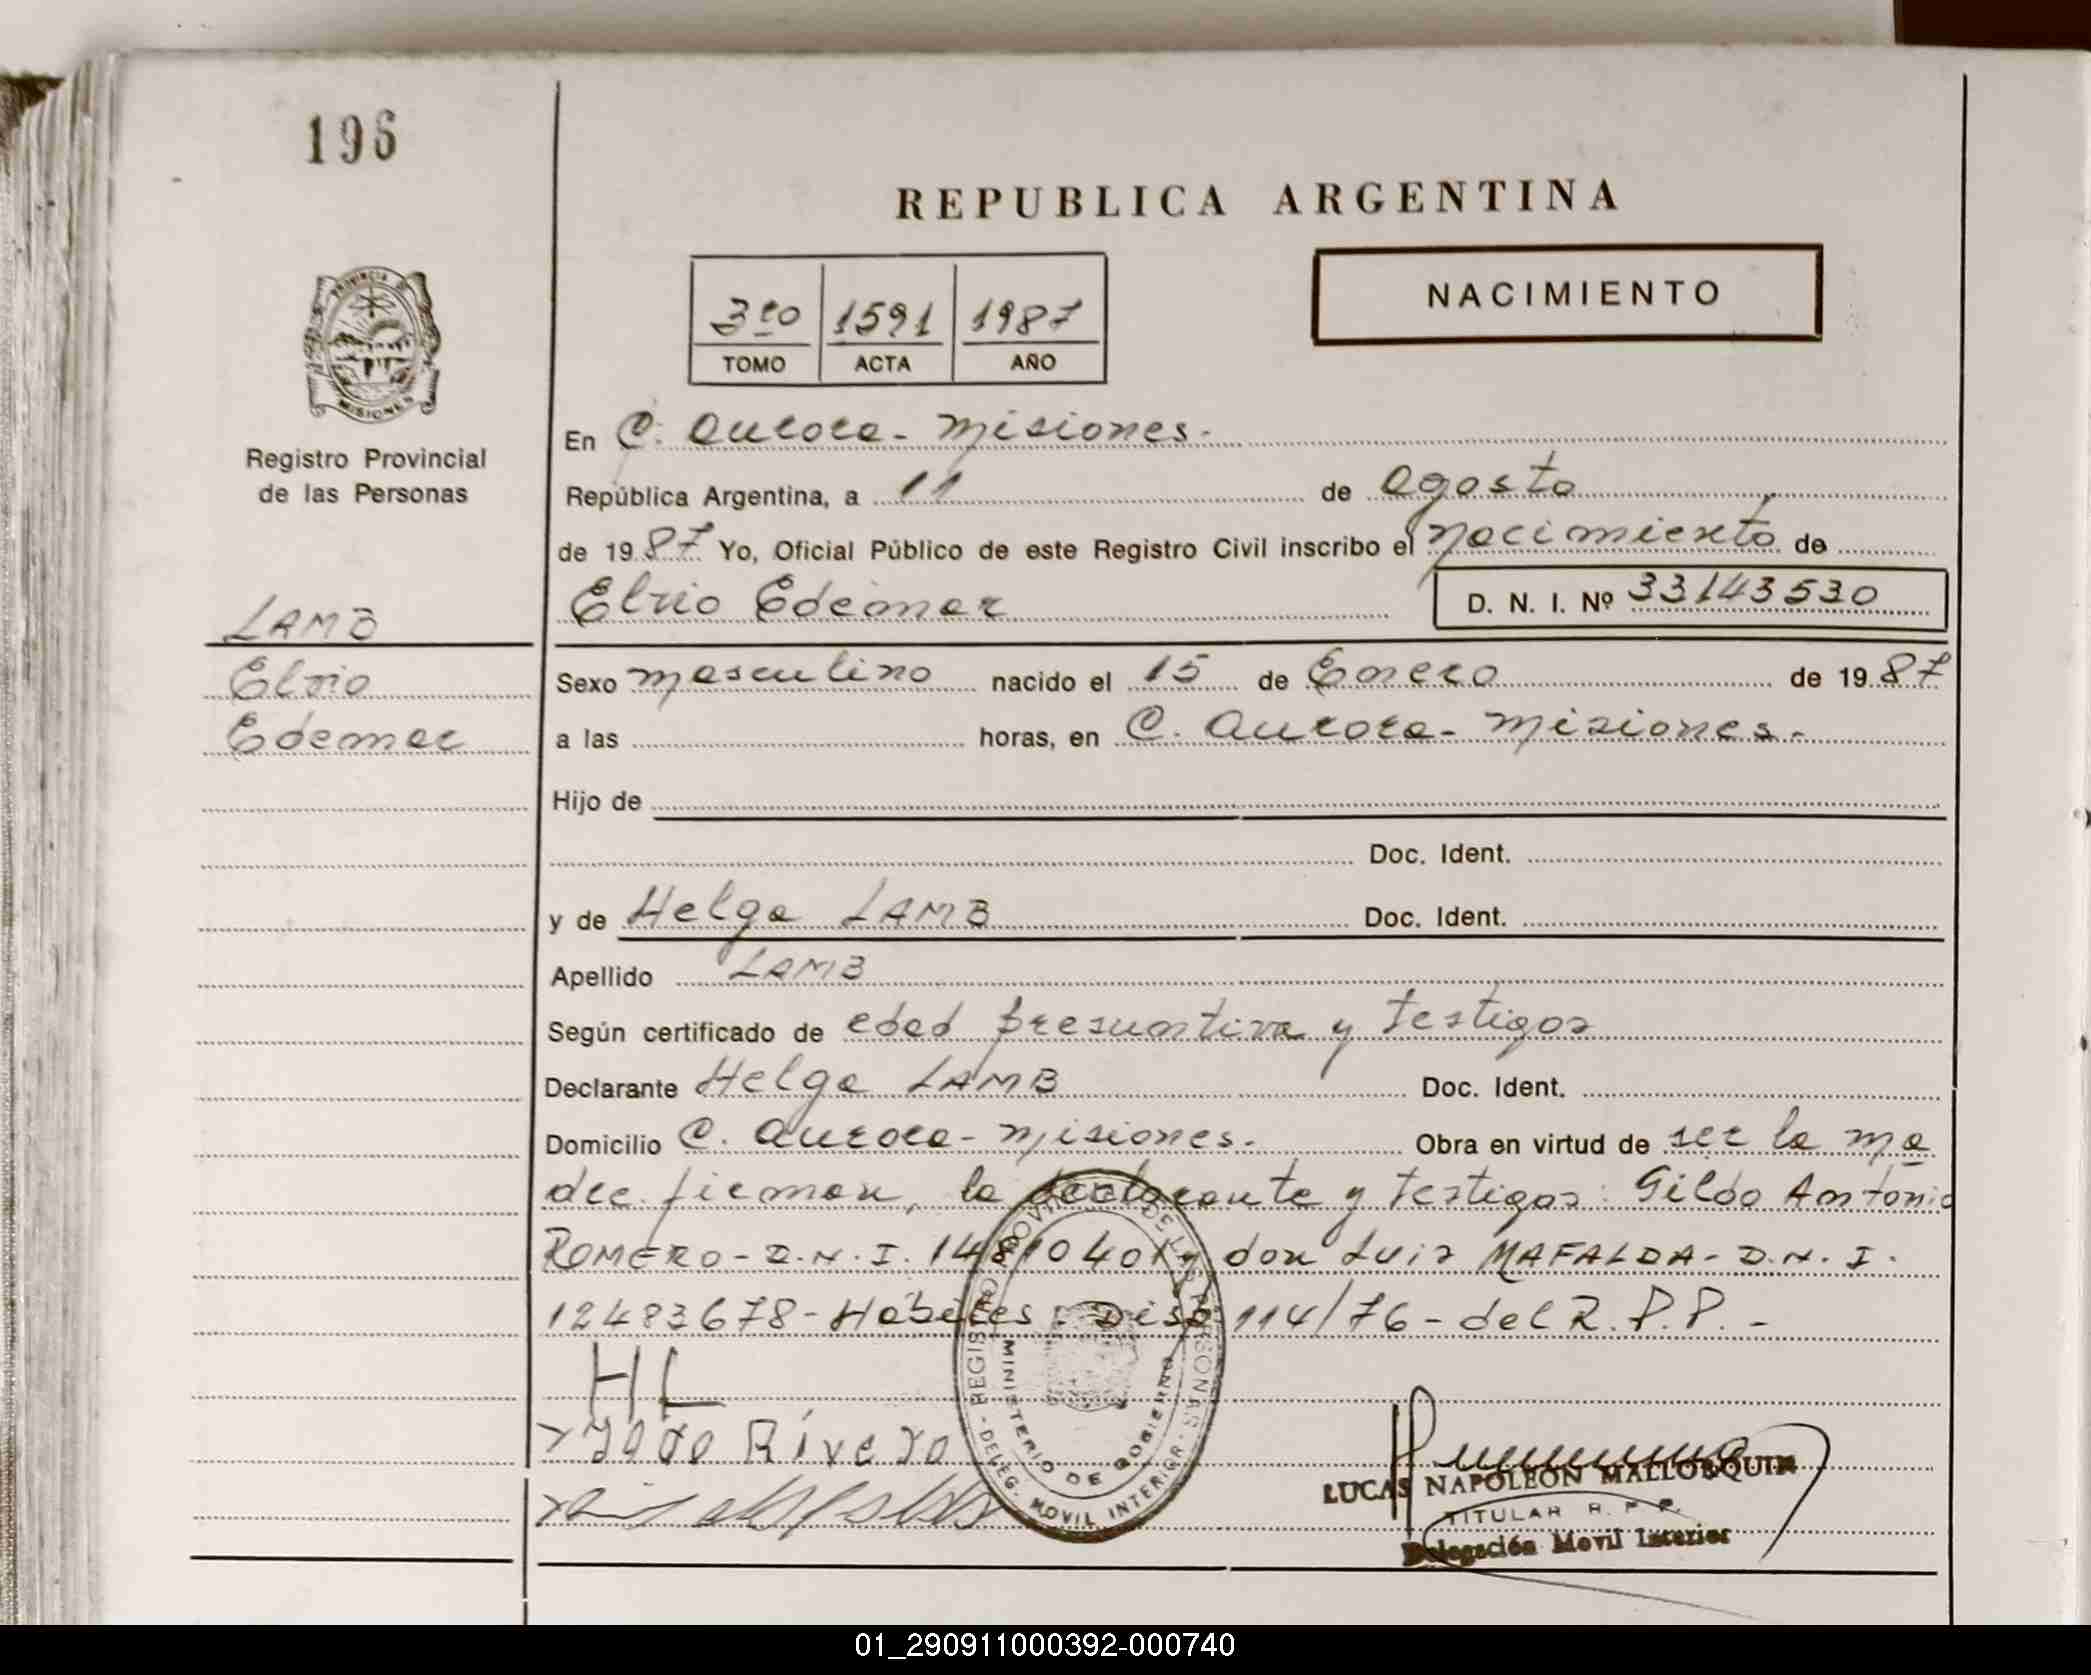 196
REPUBLICA ARGENTINA
NACIMIENTO
3ro 1591 1987
TOMO ACTA AÑO
PROVINCIA DE
MISIONES
Registro Provincial
de las Personas
En C. Aurora - Misiones.-
República Argentina, a 11 de Agosto
de 1987 Yo, Oficial Público de este Registro Civil inscribo el Nacimiento de
Elvio Edemar D. N. I. Nº 33143530
LAMB
Elvio
Edemar
Sexo masculino nacido el 15 de Enero de 1987
a las horas, en C. Aurora - Misiones.-
Hijo de
Doc. Ident.
y de Helga LAMB Doc. Ident.
Apellido LAMB
Según certificado de edad presuntiva y testigos
Declarante Helga LAMB Doc. Ident.
Domicilio C. Aurora - Misiones.- Obra en virtud de ser la ma
dre. firman, la declarante y testigos: Gildo Antonio
ROMERO - D.N.I. 14810401 y don Luis MAFALDA - D.N.I.
12483678 - Hábiles. Disp. 114/76 - del R.P.P. -
HL
Rivero
REGISTRO PROVINCIAL DE LAS PERSONAS - DELEG. MOVIL INTERIOR -
MINISTERIO DE GOBIERNO
LUCAS NAPOLEON MALLORQUIN
TITULAR R. P. P.
Delegación Movil Interior
01_290911000392-000740